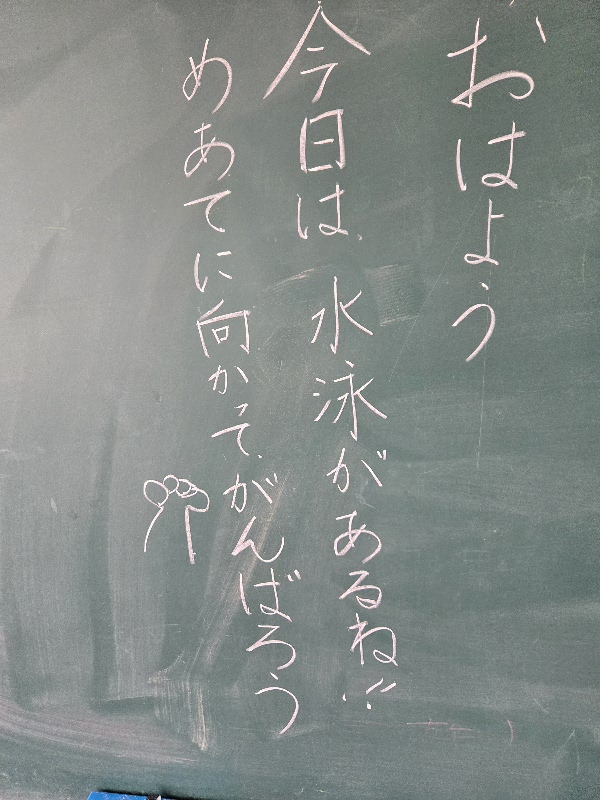 おはよう
今日は、水泳があるね!!
めあてに向かって、がんばろう